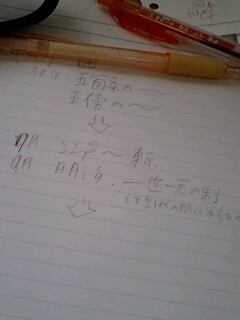 3月14 五箇条の〜
五傍の〜
⇩
7月 江戸〜東京
9月 明治. 一世一元の制
⇩